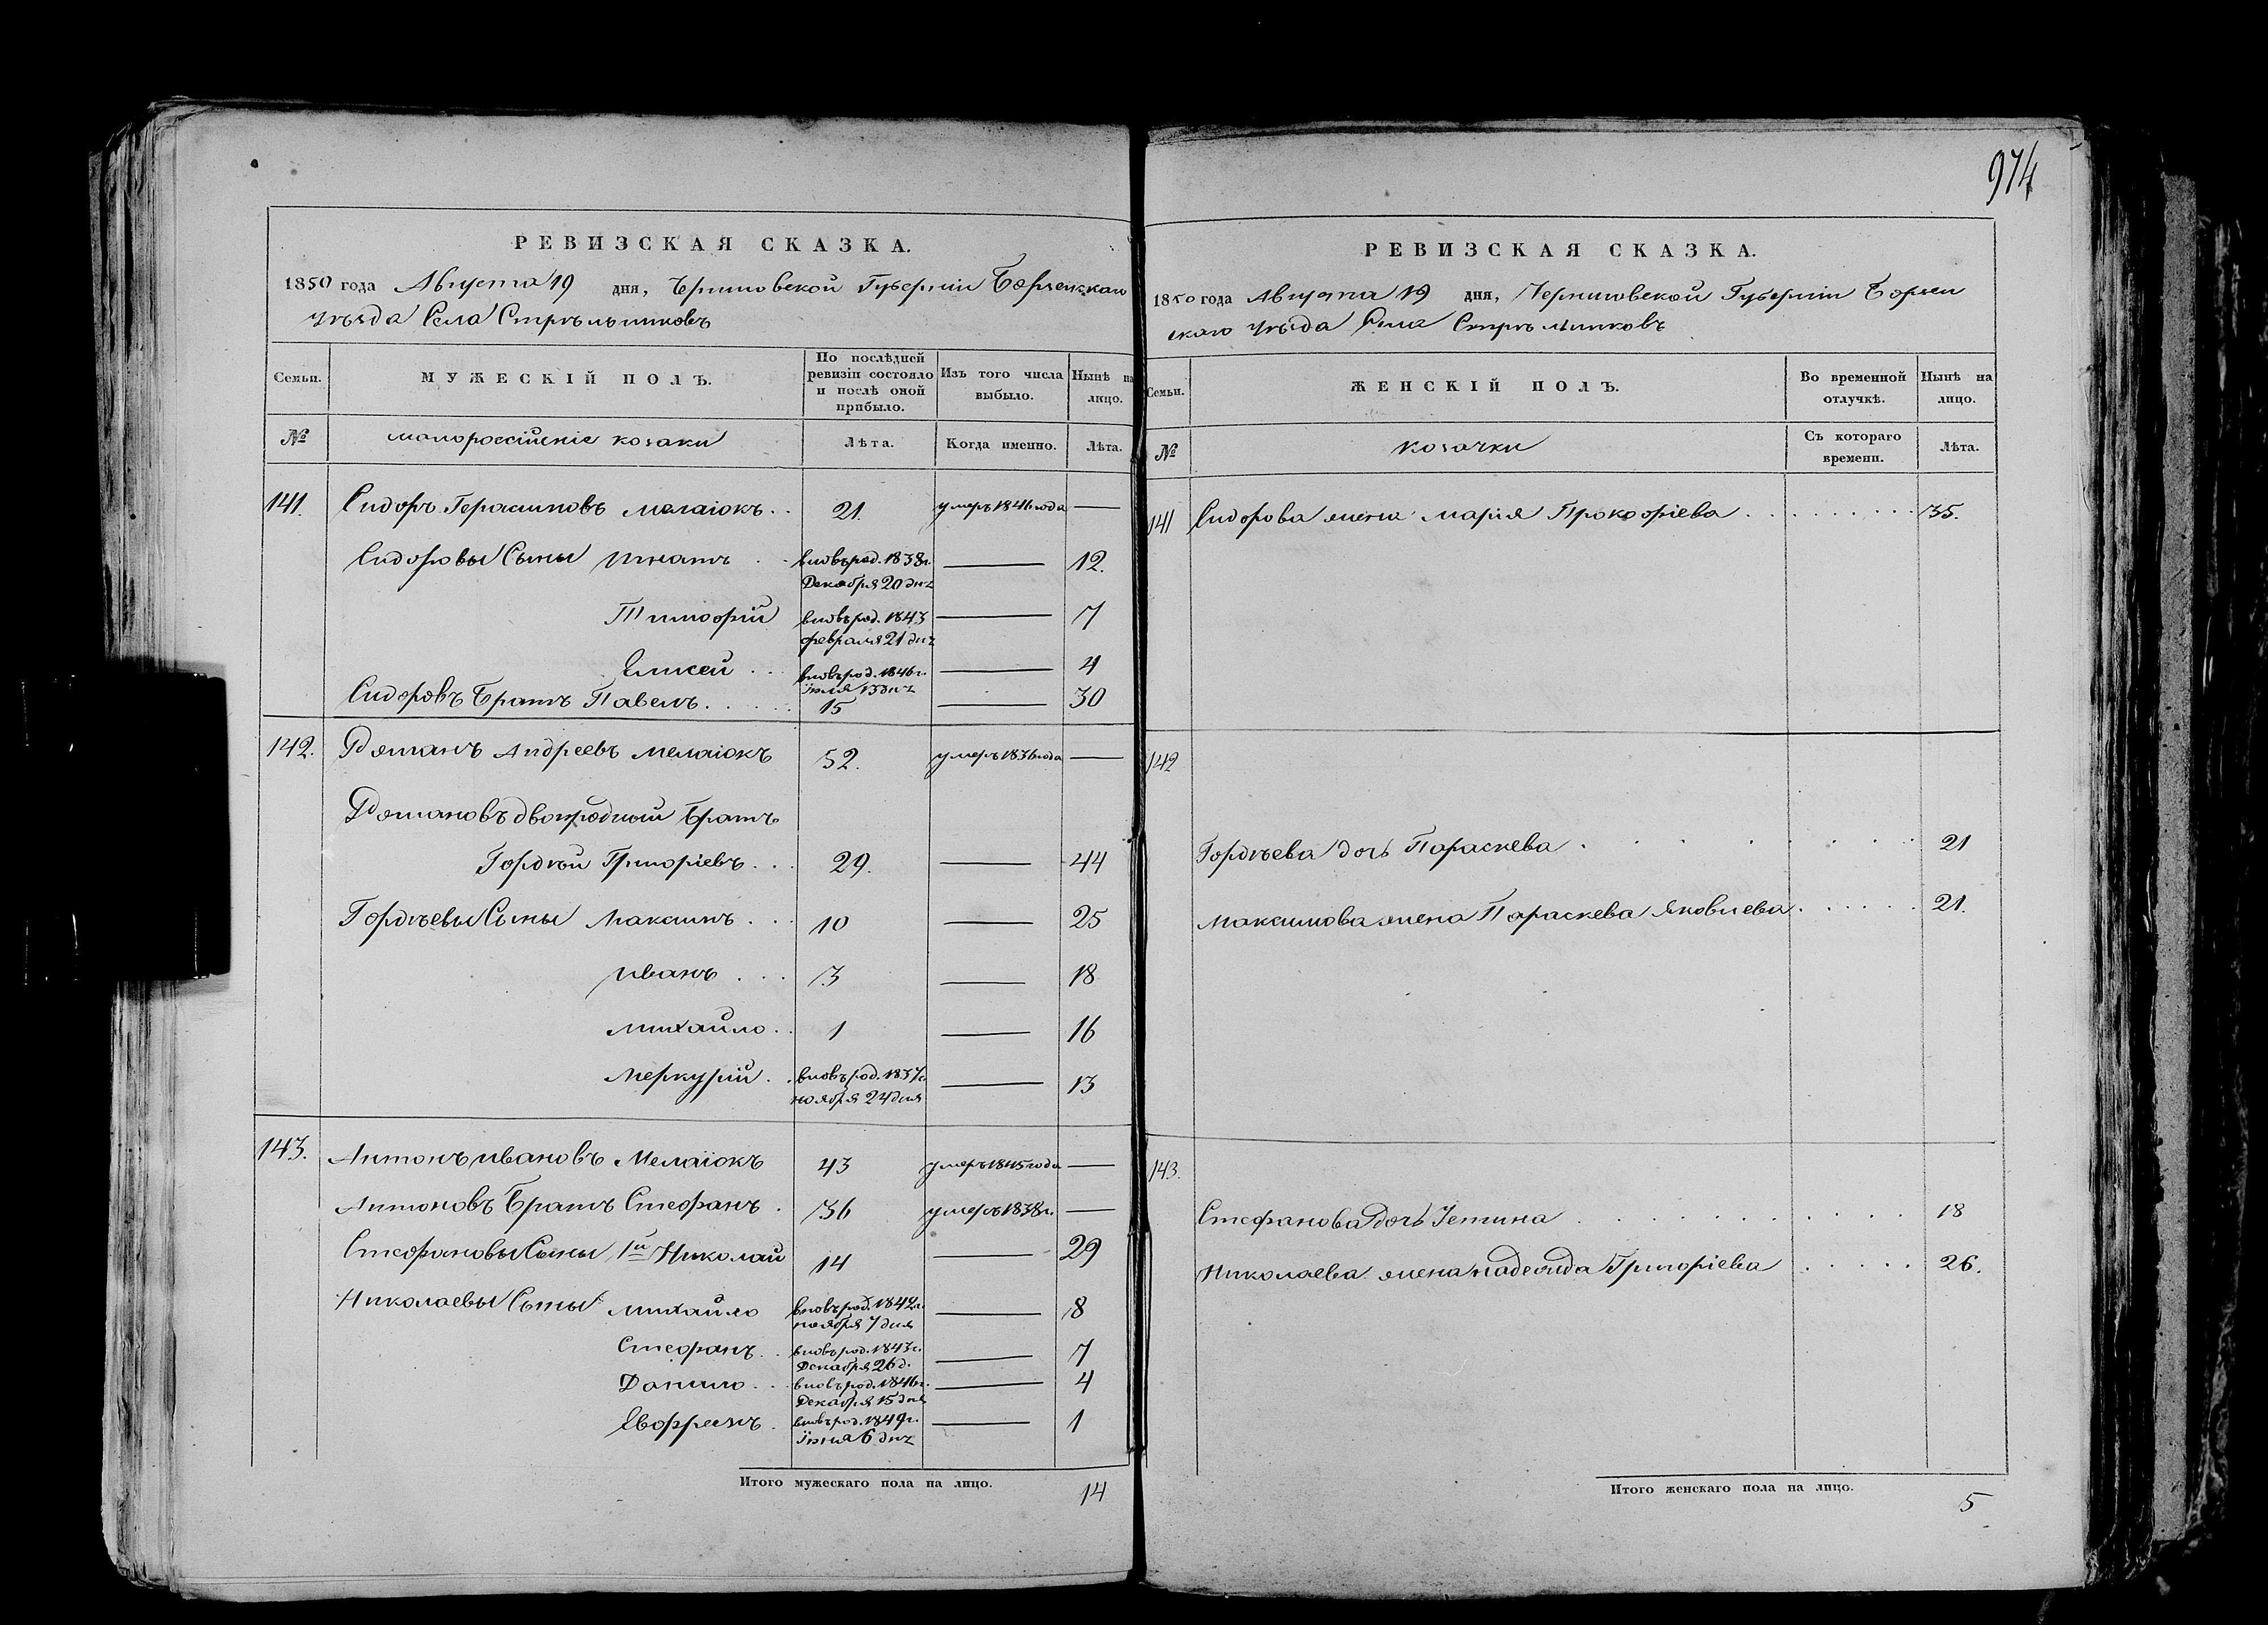 974
РЕВИЗСКАЯ СКАЗКА.
1850 года Августа 19 дня, Черниговской Губерніи Борзенскаго
уѣзда Села Стрѣльниковъ
Семьи. МУЖЕСКІЙ ПОЛЪ. По послѣдней ревизіи состояло и послѣ оной прибыло. Изъ того числа выбыло. Нынѣ на лицо.
№ малороссійскіе козаки Лѣта. Когда именно. Лѣта.
141. Сидоръ Герасимовъ Мелаіокъ . . 21. умеръ 1846 года —
Сидоровы Сыны Игнатъ . . вновь род. 1838 г. — 12.
Декабря 20 дня
Тимофій вновь род. 1843 — 7
февраля 21 дня
Елисей . . вновь род. 1846 г. — 4
Іюля 13 дня
Сидоровъ Братъ Павелъ . . . . . 15 — 30
142. Романъ Андреевъ Мелаіокъ 52. умеръ 1836 года —
Романовъ двоюродный Братъ
Гордѣй Григоріевъ . . . 29. — 44
Гордѣевы Сыны Максимъ . . . 10 — 25
Иванъ . . . 3 — 18
Михайло . . 1 — 16
Меркурій . . вновь род. 1837 г. — 13
ноября 24 дня
143. Антонъ Ивановъ Мелаіокъ 43 умеръ 1845 года —
Антоновъ Братъ Стефанъ . 36 умеръ 1838 г. —
Стефановы Сыны 1й Николай 14 — 29
Николаевы Сыны Михайло вновь род. 1842 г. — 8
ноября 7 дня
Стефанъ . . вновь род. 1843 г. — 7
Декабря 26 д.
Данило . . . вновь род. 1846 г. — 4
Декабря 15 дня
Евфремъ . вновь род. 1849 г. — 1
Іюня 6 дня
Итого мужескаго пола на лицо. 14
РЕВИЗСКАЯ СКАЗКА.
1850 года Августа 19 дня, Черниговской Губерніи Борзен
скаго уѣзда Села Стрѣльниковъ
Семьи. ЖЕНСКІЙ ПОЛЪ. Во временной отлучкѣ. Нынѣ на лицо.
№ козачки Съ котораго времени. Лѣта.
141 Сидорова жена Марія Прокофіева . . . . . . . . . 35.
142
Гордѣева дочь Параскева . . . . . . . 21
Максимова жена Параскева Яковлева . . . . . . 21.
143.
Стефанова дочь 18
Николаева жена Надежда Григоріева . . . . . 26.
Итого женскаго пола на лицо. 5